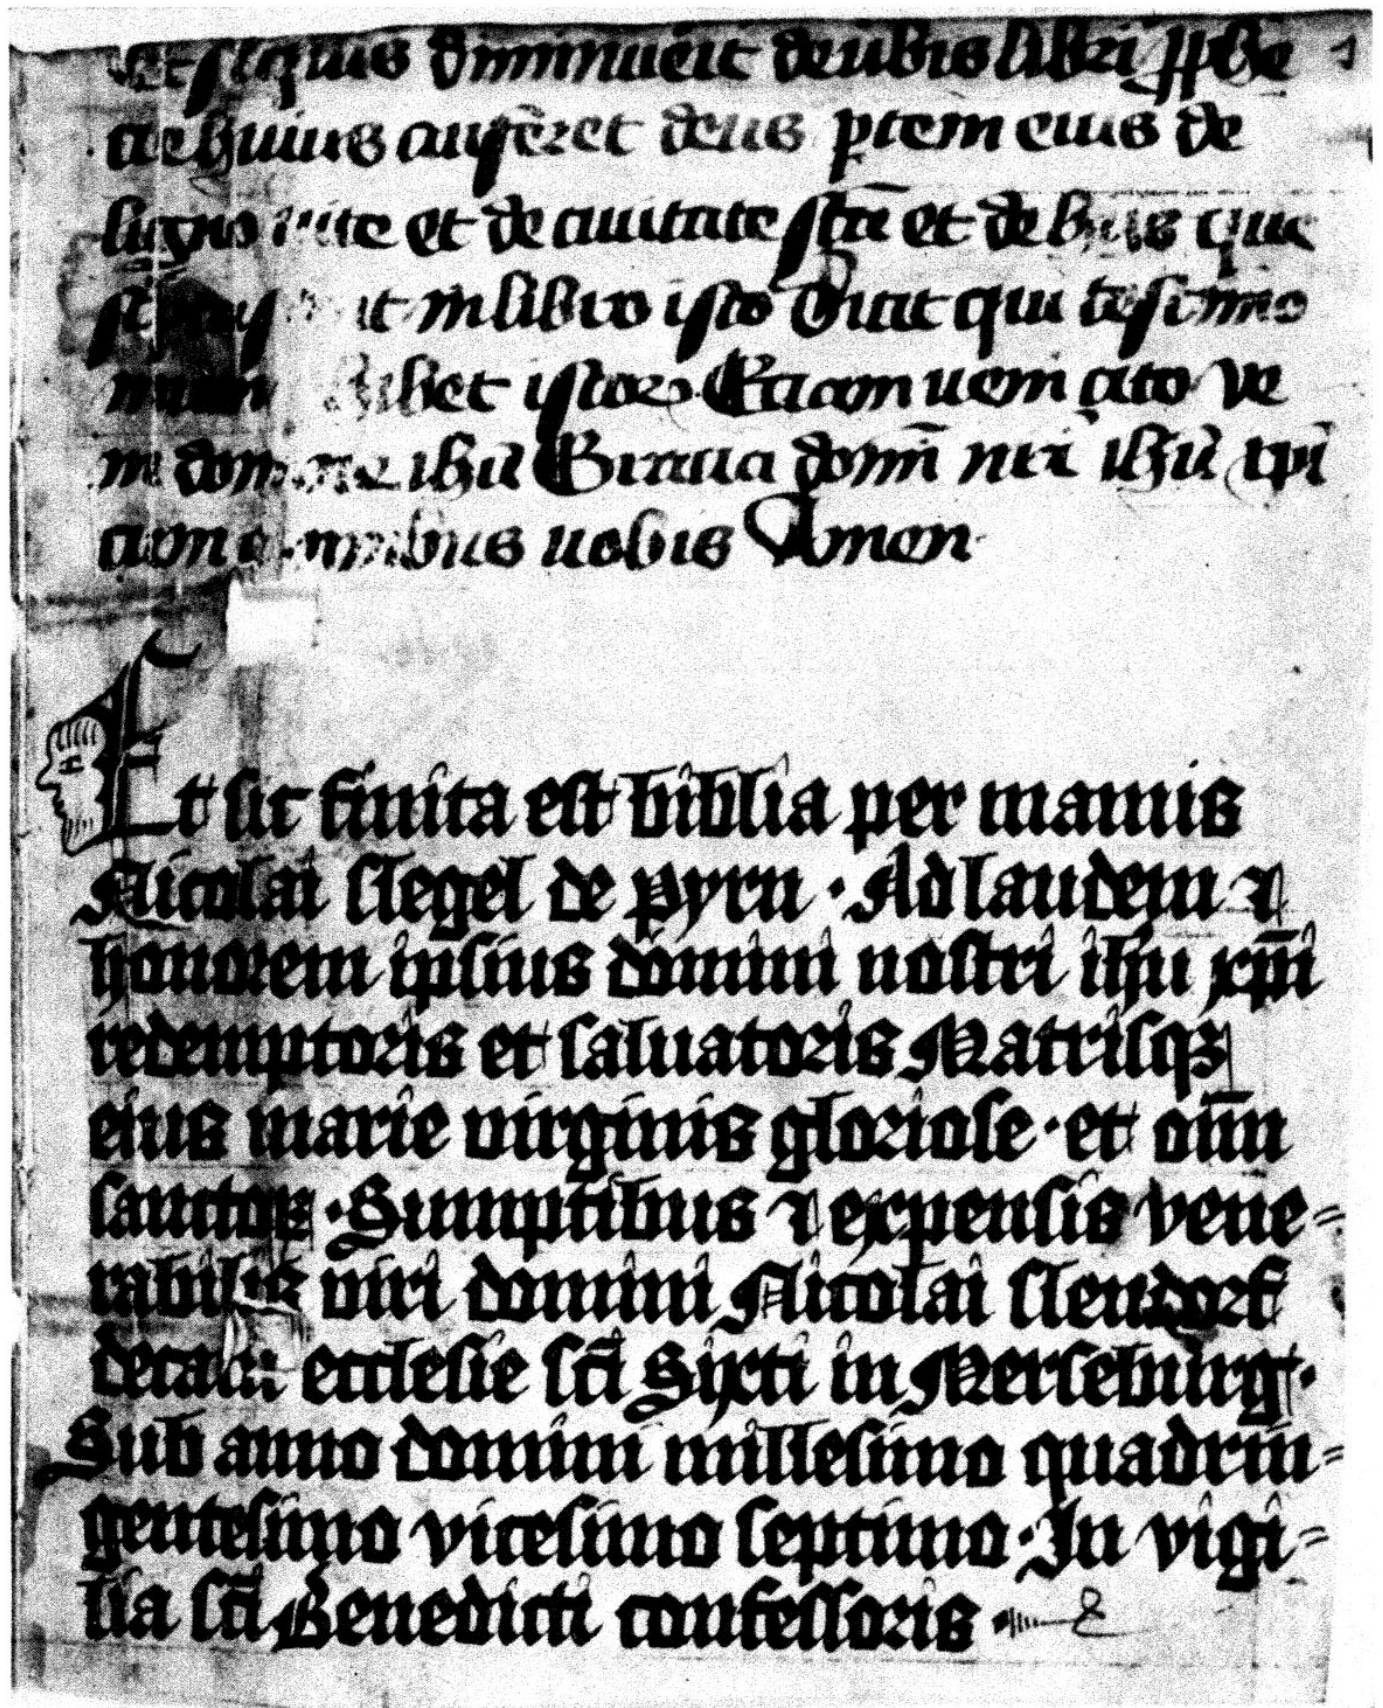 Et si quis diminuerit de ūbis libri ꝓphe
cie huius auferet deus ꝑtem eius de
ligno vite et de ciuitate sc̄ta et de hiis que
in libro isto Dicit qui testimo
istoꝝ Eciam uenio cito Ve
ni domine ihū Gracia domī nr̄i ihū xp̄i
cum omnibus uobis Amen
Et sic finita est biblia per manus
Nicolai slegel de pyrn · Ad laudem ⁊
honorem ipsius domini nostri ihū xp̄i
redemptoris et saluatoris Matrisqꝫ
eius marie virginis gloriose · et om̄n
sanctoꝝ · Sumptibus ⁊ expensis vene⸗
rabilis viri domini Nicolai slendorf
decani ecclesie sc̄i Sixti in Merseburg ·
Sub anno domini millesimo quadrin⸗
gentesimo vicesimo septimo · In vigi⸗
lia sc̄i Benedicti confessoris